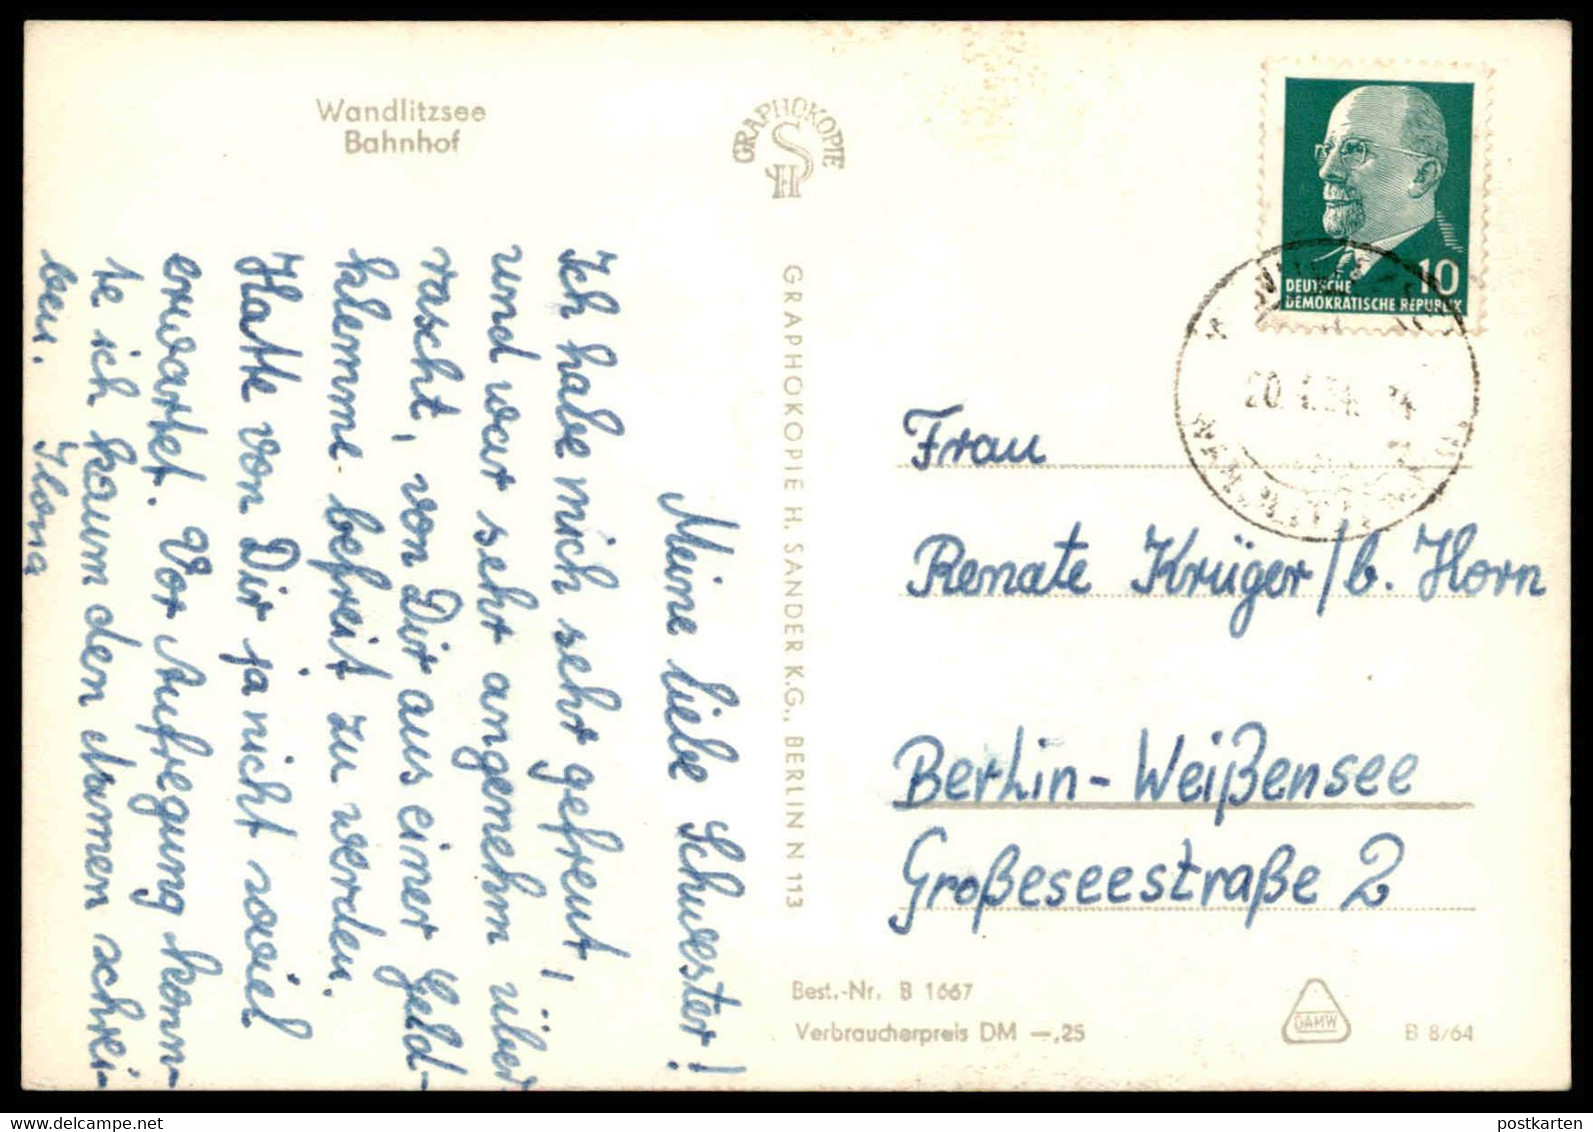 Wandlitzsee
Bahnhof
GRAPHOKOPIE
H S
DEUTSCHE
DEMOKRATISCHE REPUBLIK
10
Meine liebe Schwester!
Ich habe mich sehr gefreut,
und war sehr angenehm über
rascht, von Dir aus einer Geld-
klemme befreit zu werden.
Hatte von Dir ja nicht soviel
erwartet. Vor Aufregung konn-
te ich kaum den Namen schrei-
ben. Ilona
GRAPHOKOPIE H. SANDER K.G., BERLIN N 113
Frau
Renate Krüger / b. Horn
Berlin-Weißensee
Großeseestraße 2
Best.-Nr. B 1667
Verbraucherpreis DM —,25
DAMW
B 8/64
postkarten